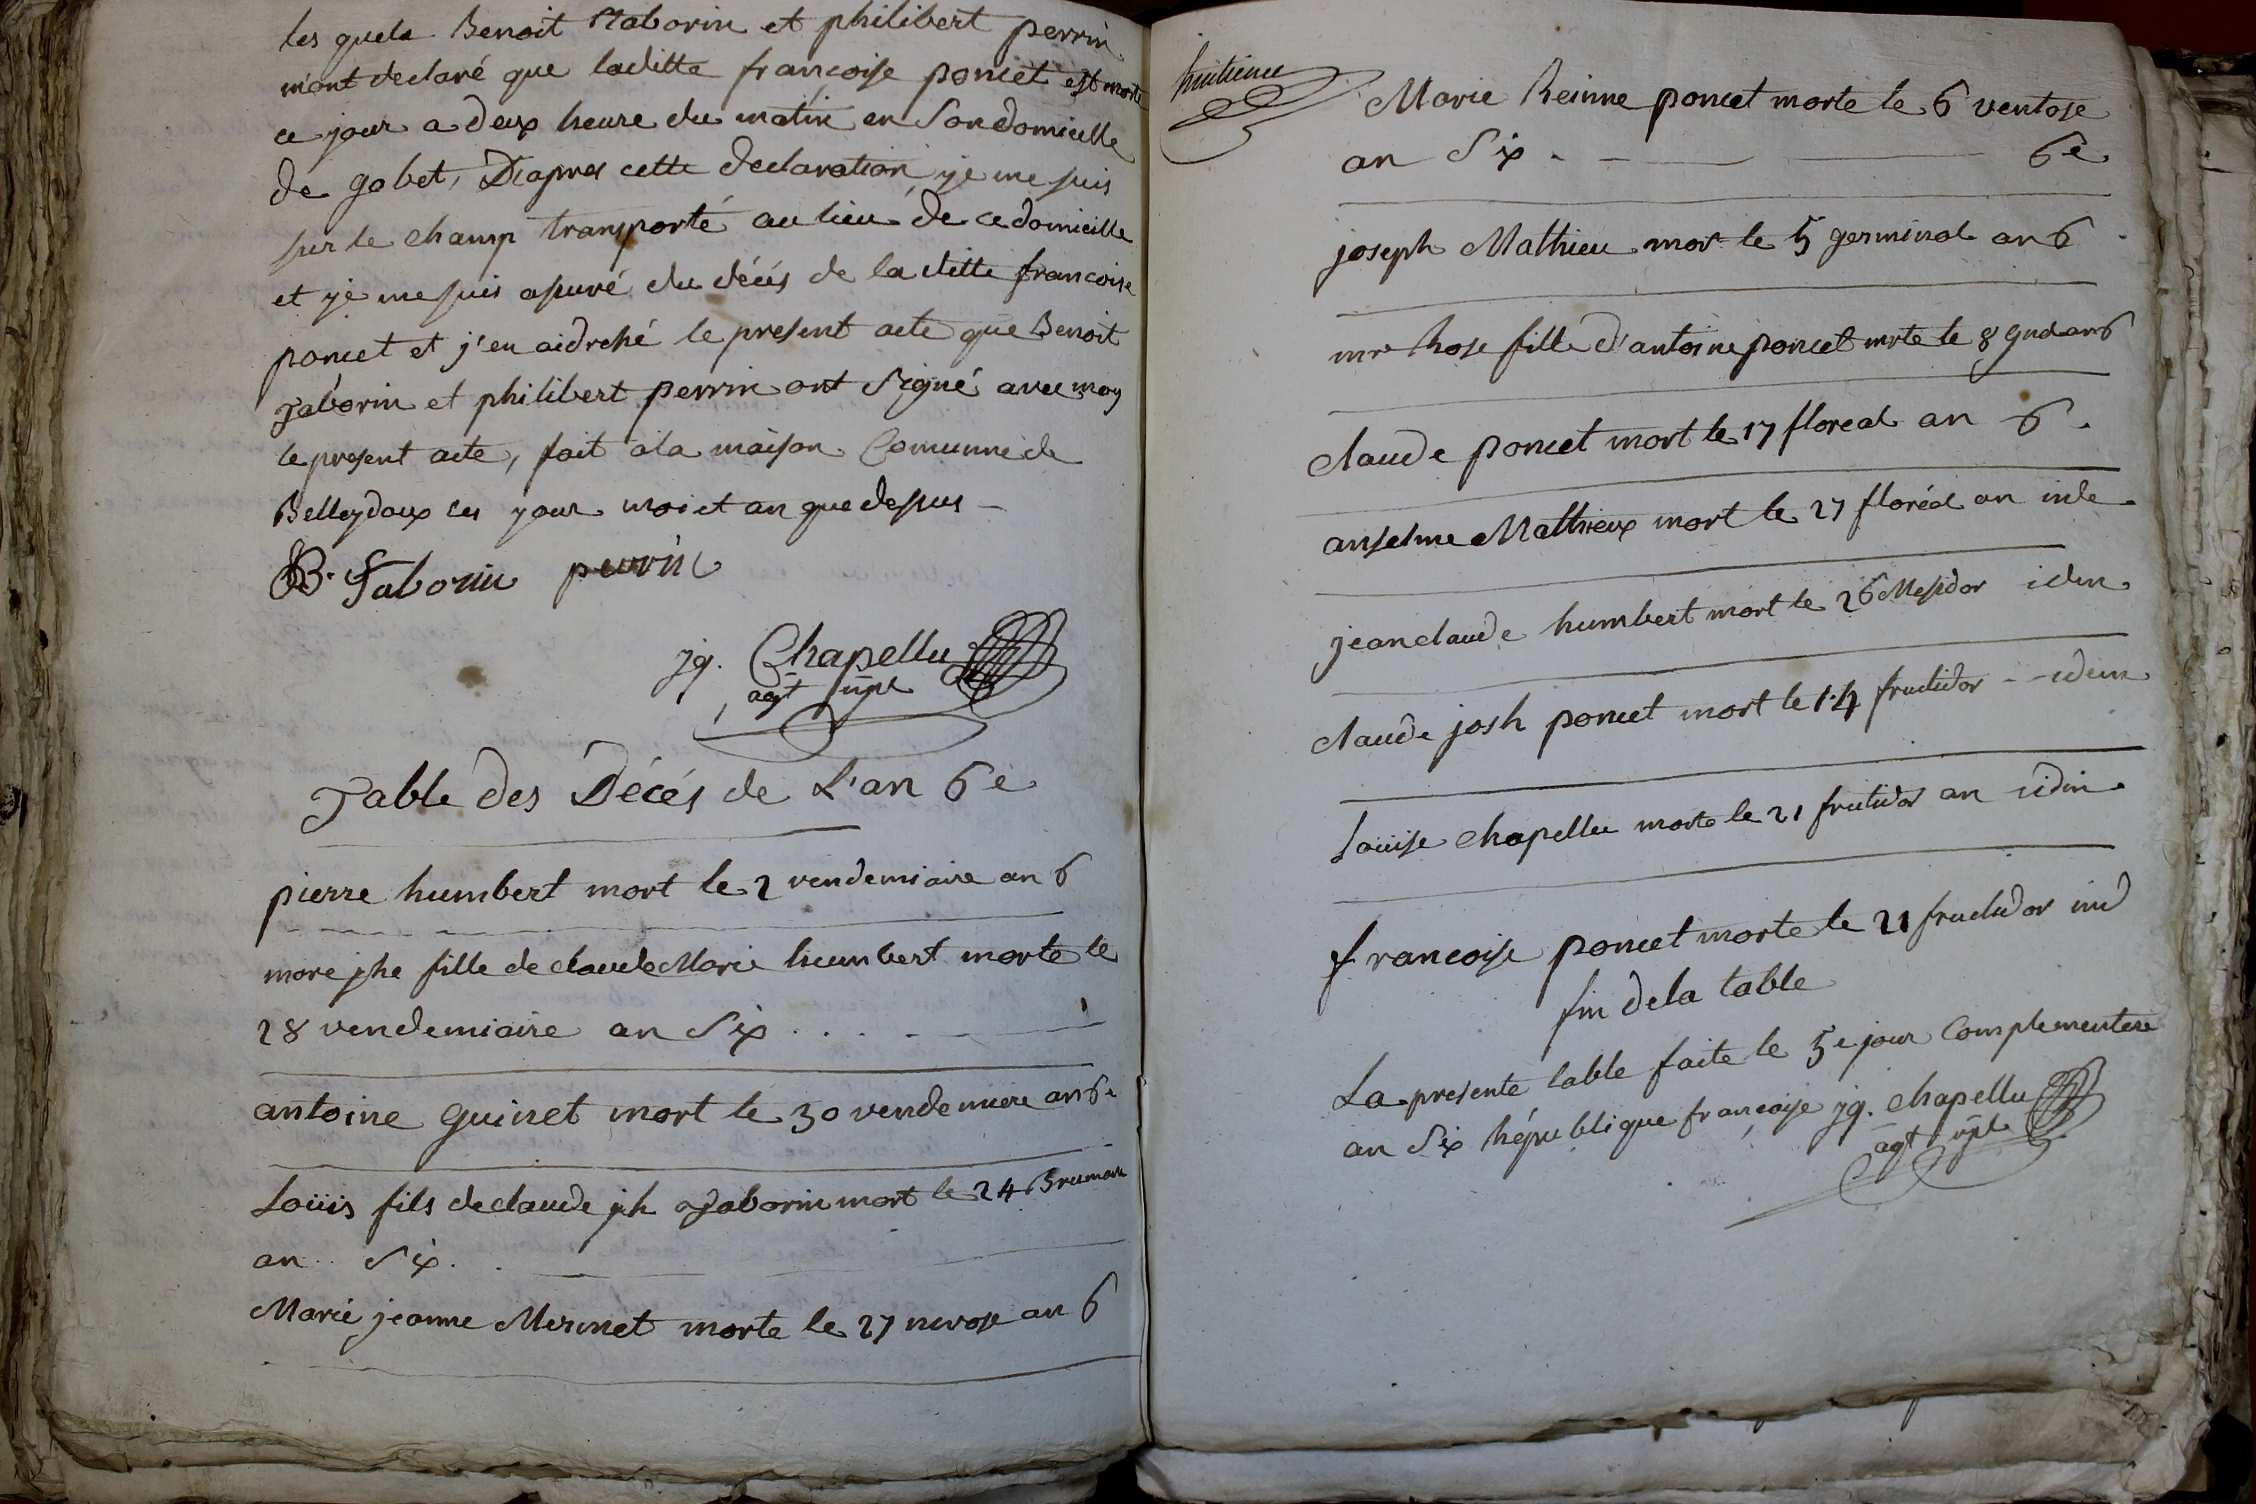 les quels Benoit Taborin et philibert perrin
m'ont declaré que laditte françoise poncet est morte
ce jour a deux heure du matin en son domicille
de gobet, D'apres cette declaration, je me suis
sur le champ transporté au lieu de ce domicille
et je me suis assuré du décés de la ditte francoise
poncet et j'en ai dressé le present acte que Benoit
Taborin et philibert perrin ont signé avec moy
le present acte, fait a la maison Comunne de
Belleydoux les jour mois et an que dessus
B. Taborin perrin
jq. Chapellu
agt
Table des Décés de L'an 6e
pierre humbert mort le 2 vendemiaire an 6
marie jhe fille de claude Marie humbert morte le
28 vendemiaire an six
antoine guinet mort le 30 vendemiere an 6e
Loüis fils de claude jph Taborin mort le 24 Brumaire
an six
Marie jeanne Mermet morte le 27 nivose an 6
huitieme
Marie Reinne poncet morte le 6 ventose
an six 6e
joseph Mathieu mort le 5 germinal an 6
mie Rose fille d'antoine poncet morte le 8 an 6
claude poncet mort le 17 floreal an 6
anselme Mathieux mort le 27 floréal an
jean claude humbert mort le 26 Messidor idem
claude josh poncet mort le 14 fructidor idem
Loüise chapellu morte le 21 fructidor an idem
francoise poncet morte le 21 fructidor
fin de la table
La presente table faite le 5e jour Complementere
an six République françoise jq. Chapellu
agt